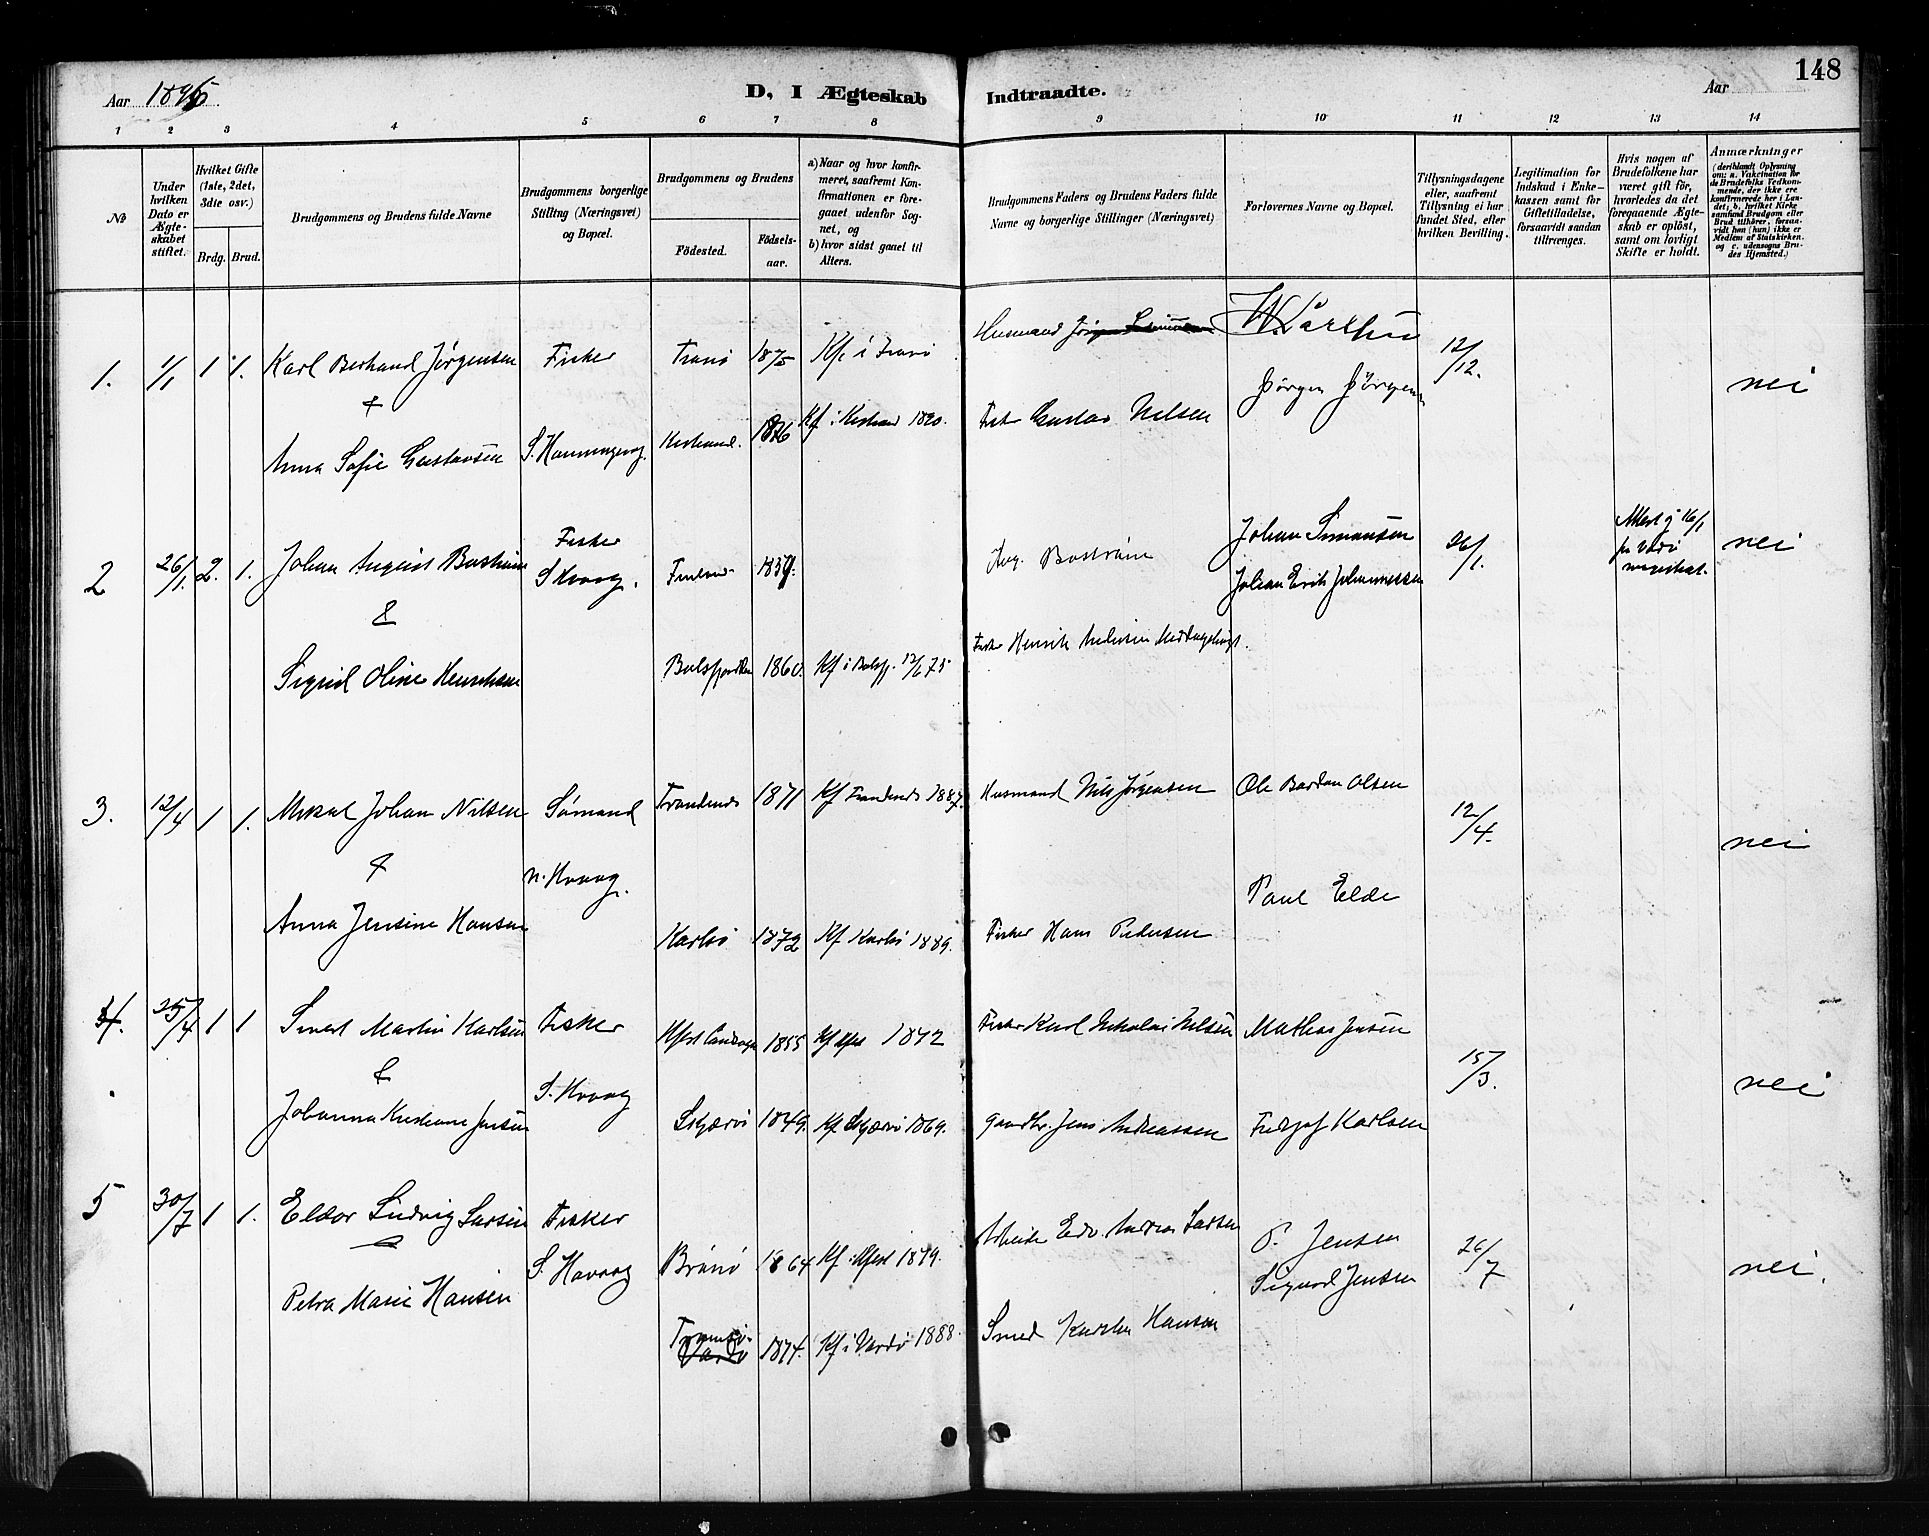 148
Aar 1896
D, I Ægteskab Indtraadte.
Aar
1 2 3 4 5 6 7 8 9 10 11 12 13 14
No
Under hvilken Dato er Ægteskabet stiftet.
Hvilket Gifte (1ste, 2det, 3die osv.)
Brdg. Brud.
Brudgommens og Brudens fulde Navne
Brudgommens borgerlige Stilling (Næringsvei) og Bopæl.
Brudgommens og Brudens
Fødested. Fødselsaar.
a) Naar og hvor konfirmeret, saafremt Konfirmationen er foregaaet udenfor Sognet, og
b) hvor sidst gaaet til Alters.
Brudgommens Faders og Brudens Faders fulde Navne og borgerlige Stillinger (Næringsvei)
Forlovernes Navne og Bopæl.
Tillysningsdagene eller, saafremt Tillysning ei har fundet Sted, efter hvilken Bevilling.
Legitimation for Indskud i Enkekassen samt for Giftetilladelse, forsaavidt saadan tiltrænges.
Hvis nogen af Brudefolkene har været gift før, hvorledes da det foregaaende Ægteskab er opløst, samt om lovligt Skifte er holdt.
Anmærkninger (deriblandt Oplysning om: a. Vakcination for de Brudefolks Vedkommende, der ikke ere konfirmerede her i Landet; b. hvilket Kirkesamfund Brudgom eller Brud tilhører, forsaavidt han (hun) ikke er Medlem af Statskirken, og c. udensogns Brudes Hjemsted.)
1. 1/1 1 1. Karl Berhand Jørgensen Fisker Tranø 1875 Kf. i Tranø Husmand
12/12. nei
&
Jørgen Jørgensen
Anna Sofie Gustavsen S. Honningsvog. Kistrand. 1876 Kf i Kistrand 1890. Gustav Nilsen
2 26/1. 2. 1. Johan August Fisker S. Hvaag. 1859. Aug. Bostrøm Johan Simonsen 26/1. Attest 16/1 fr Vardø nei
Johan Erik Johannessen
&
Sigrid Oline 1860. Kf i Balsfj. 75 Henrik
3. 12/4 1 1. Mikal Johan Nilsen Sømand Trondenes 1871 Kf Trondenes 1887. Husmand Nils Jørgensen Ole Bardan Olsen 12/4. nei
& N. Hvaag. Paul Elde
Anna Jensine Hansen Karlsø 1872 Kf Karlsø 1889. Fisker Hans Pedersen
4. 25/4 1 1 Martin Karlsen Fisker 1855 Kf Hfest 1872 Fisker Karl Nikolai Nilsen Mathis Jensen 15/3. nei
& S. Hvaag
Johanna Kristiane Jensen Skjærvø 1849. Kf Skjærvø 1869. Gaardbr. Jens Andreassen Fridtjof Karlsen
5 30/7 1 1. Eldor Ludvig Larsen Fisker Brønø 1864 Kf i Hfest 1879. Edv. Andreas Larsen P. Jensen 26/7 nei.
& S. Hvaag Sigurd Jensen
Petra Marie Hansen Tromsø. Vardø 1874. Kf i Vardø 1888. Smed Hansen